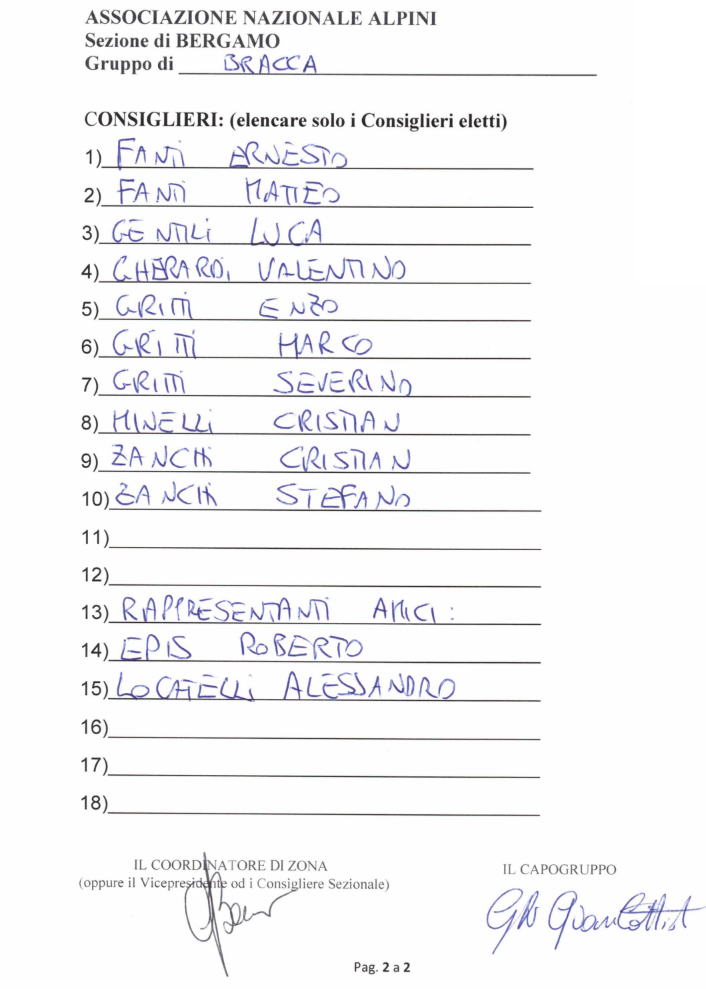 ASSOCIAZIONE NAZIONALE ALPINI
Sezione di BERGAMO
Gruppo di BRACCA
CONSIGLIERI: (elencare solo i Consiglieri eletti)
1) FANTI ERNESTO
2) FANTI MATTEO
3) GENTILI LUCA
4) GHERARDI VALENTINO
5) GRITTI ENZO
6) GRITTI MARCO
7) GRITTI SEVERINO
8) MINELLI CRISTIAN
9) ZANCHI CRISTIAN
10) ZANCHI STEFANO
11)
12)
13) RAPPRESENTANTI AMICI:
14) EPIS ROBERTO
15) LOCATELLI ALESSANDRO
16)
17)
18)
IL COORDINATORE DI ZONA
(oppure il Vicepresidente od i Consigliere Sezionale)
IL CAPOGRUPPO
Pag. 2 a 2